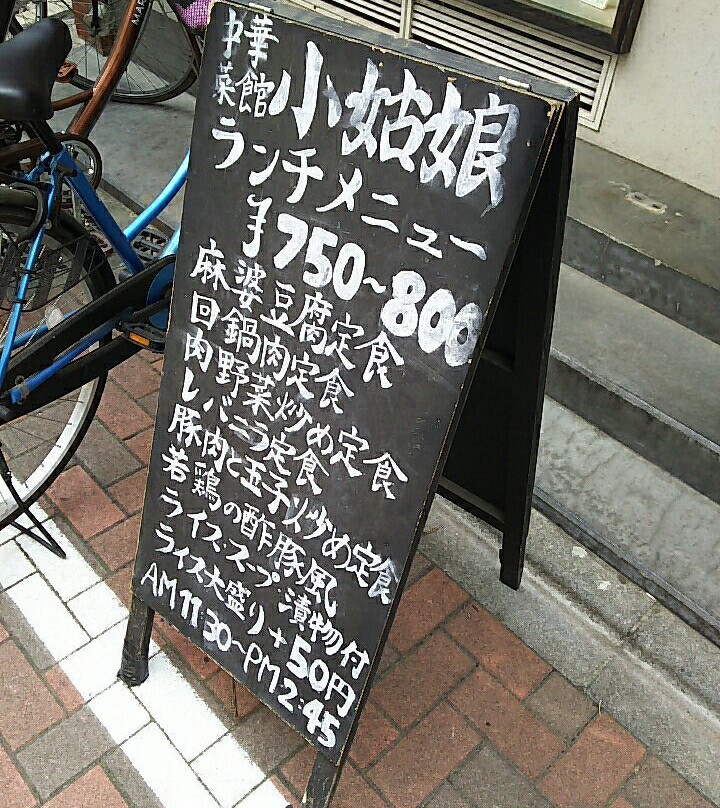 中華菜館 小姑娘
ランチメニュー
¥750~800
麻婆豆腐定食
回鍋肉定食
肉野菜炒め定食
レバニラ定食
豚肉と玉子炒め定食
若鶏の酢豚風
ライス.スープ.漬物付
ライス大盛り+50円
AM11:30~PM2:45